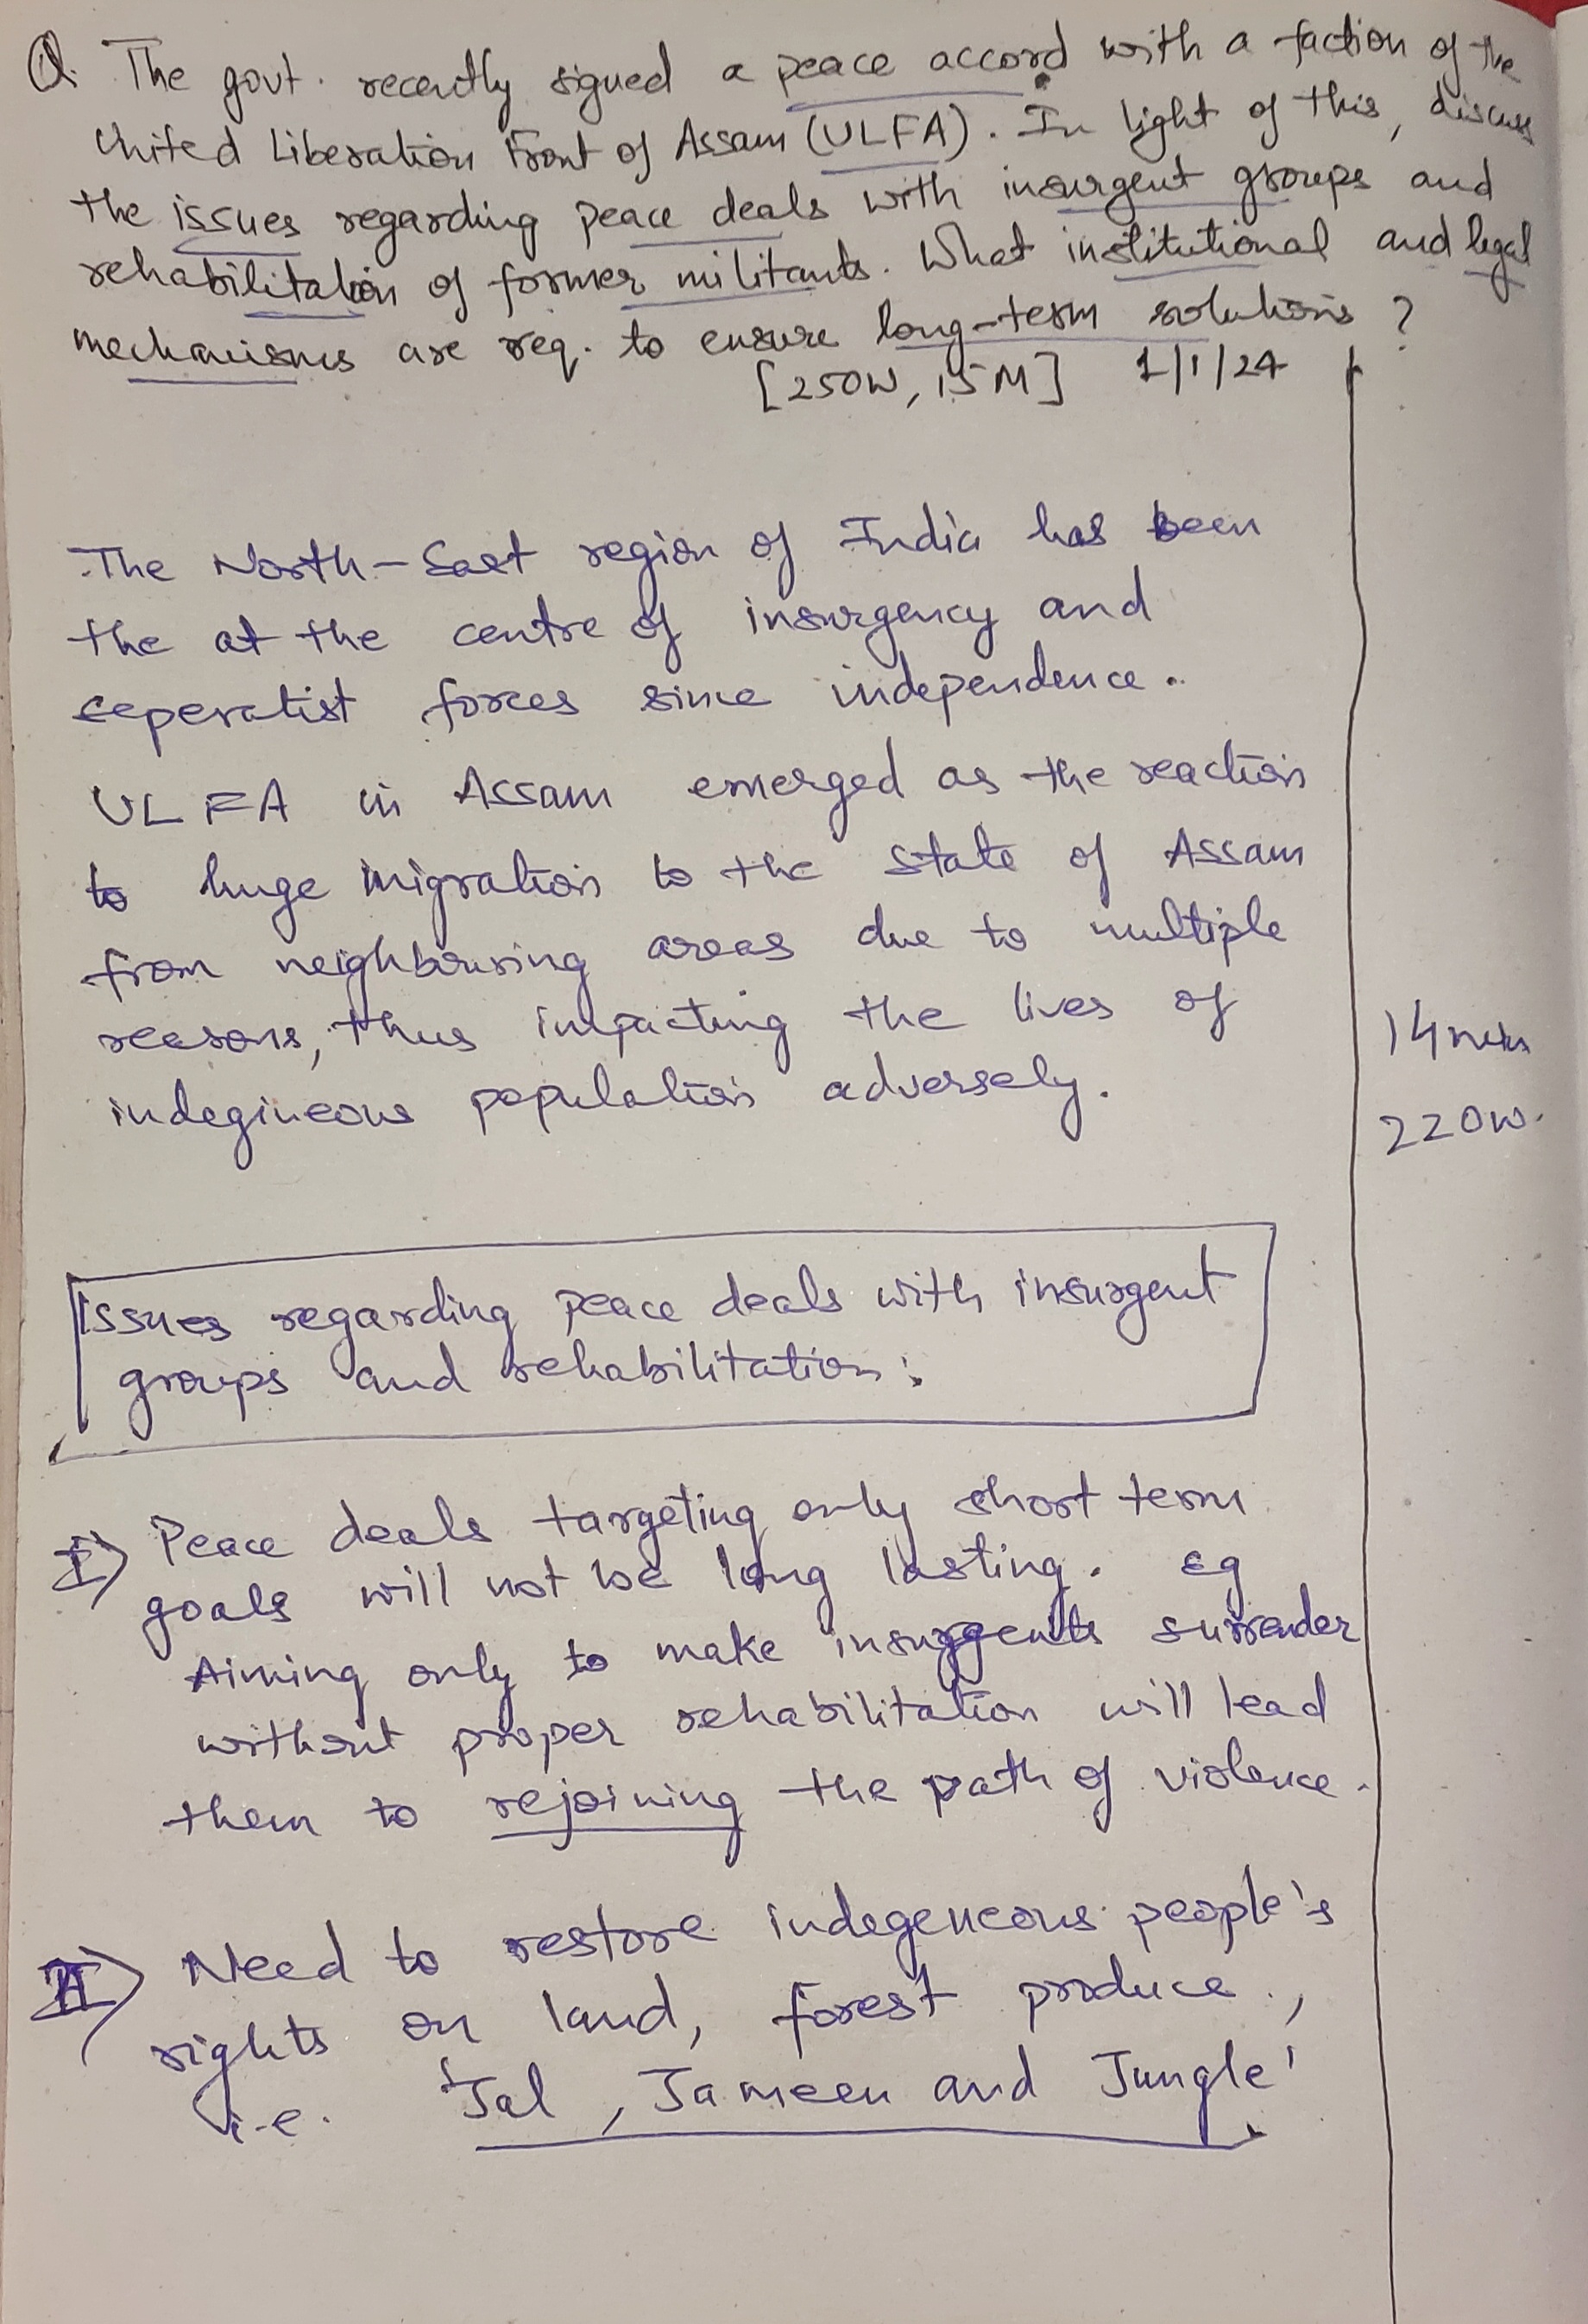 Q. The govt. recently signed a peace accord with a faction of the
United Liberation Front of Assam (ULFA). In light of this, discuss
the issues regarding peace deals with insurgent groups and
rehabilitation of former militants. What institutional and legal
mechanisms are req. to ensure long-term solutions ?
[250W, 15M] 1/1/24
The North-East region of India has been
the at the centre of insurgency and
seperatist forces since independence.
ULFA in Assam emerged as the reaction
to huge migration to the state of Assam
from neighbouring areas due to multiple
reasons, thus impacting the lives of
indegineous population adversely.
14 min
220W.
Issues regarding peace deals with insurgent
groups and rehabilitation:
I) Peace deals targeting only short term
goals will not be long lasting. Eg
Aiming only to make insurgents surrender
without proper rehabilitation will lead
them to rejoining the path of violence.
II) Need to restore indegeneous people's
rights on land, forest produce,
i.e. 'Jal, Jameen and Jungle'